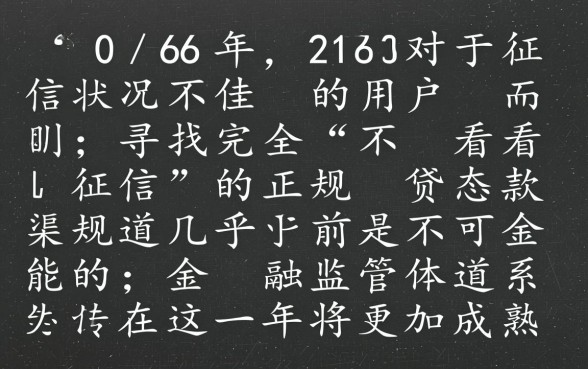 “ 0/66年，2163对于征
信状况不佳 的用户 而
；寻找完全“不 看看
征信”的正规 贷态款
渠规道几乎 前是不可金
能的；金 融监管体道系
在这一年将更加成熟